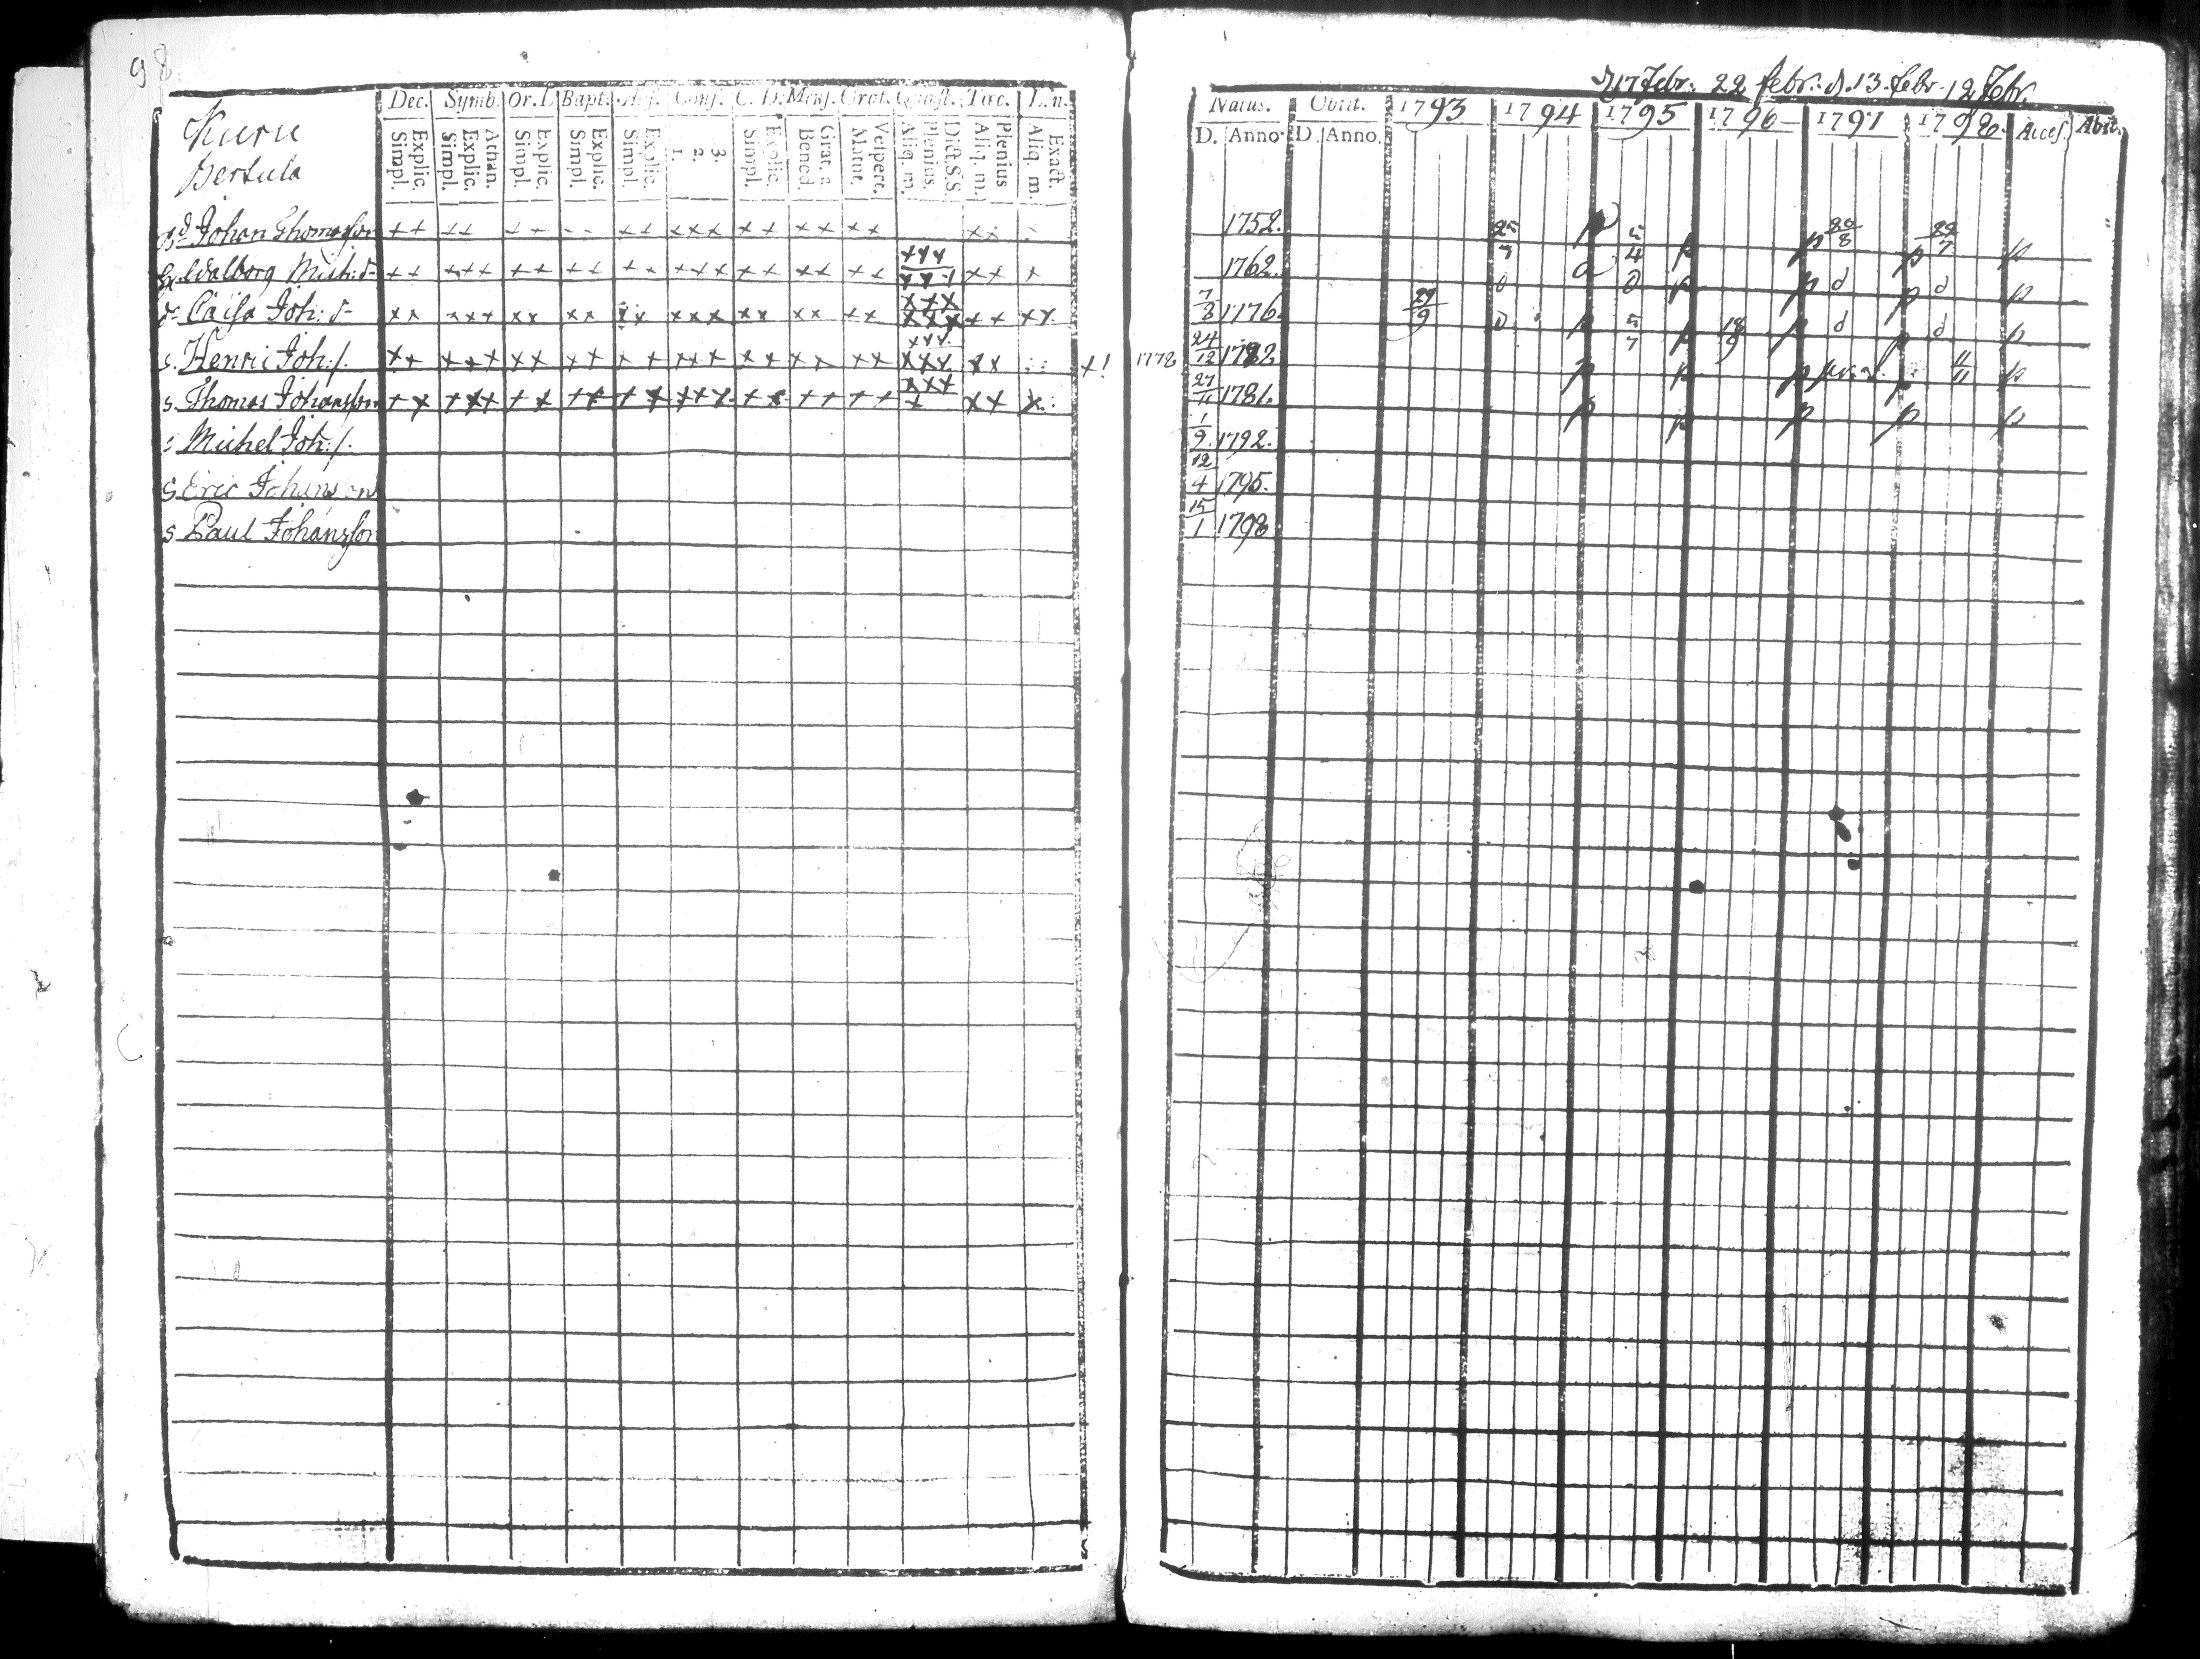 98
Kuru
Pertula
Dec. Symb. Or. D. Bapt. Conf. C. D. Mens. Grat. Quæst. Tac.
Simpl. Explic. Simpl. Explic. Athan. Simpl. Explic. Simpl. Explic. Simpl. Explic. 1. 2. 3. Simpl. Explic. Bened. Grat. a. Matut. Vespert. Aliq. m. Plenius. Dict. S. S. Aliq. m. Plenius Aliq. m. Exact.
Johan Thomasson ++ ++ ++ ++ +++ ++ ++ ++
Walborg Mich: d- ++ +++ ++ ++ ++ +++ ++ ++ ++ +++ +++ ++ +
d. Caisa Joh: d- ++ +++ ++ ++ ++ +++ ++ ++ ++ +++ +++ ++ ++
s. Henric Joh:/. ++ +++ ++ ++ ++ +++ ++ ++ ++ +++ +++ ++ +! 1778
s. Thomas Johansson ++ +++ ++ ++ ++ +++ ++ ++ ++ +++ + ++ +
s Michel Joh:/.
s Eric Johansson
s Paul Johansson
d 17 Febr. 22 febr. d. 13. febr. 12 Febr.
Natus. Obiit. 1793 1794 1795 1796 1797 1798 Access. Abiit.
D. Anno D. Anno.
1752. 25/7 p 5/4 p p 20/8 p 22/7 p
1762. d p p d p d p
7/3 1776. 29/9 d p 5/7 p 18/9 p d p d p
24/12 1782 p p p p 11/11 p
27/11 1781. p p p p p
1/9 1792.
12/4 1795.
15/1 1798